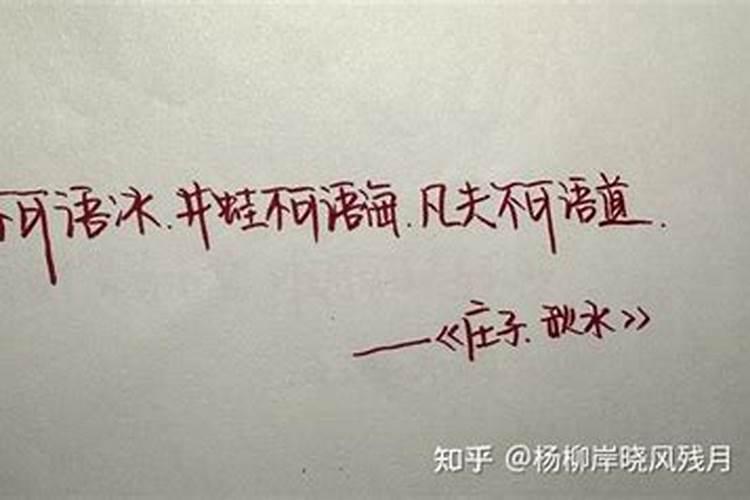 不可语冰.井蛙不可语海.凡夫不可语道.
——《庄子.秋水》
知乎 @杨柳岸晓风残月